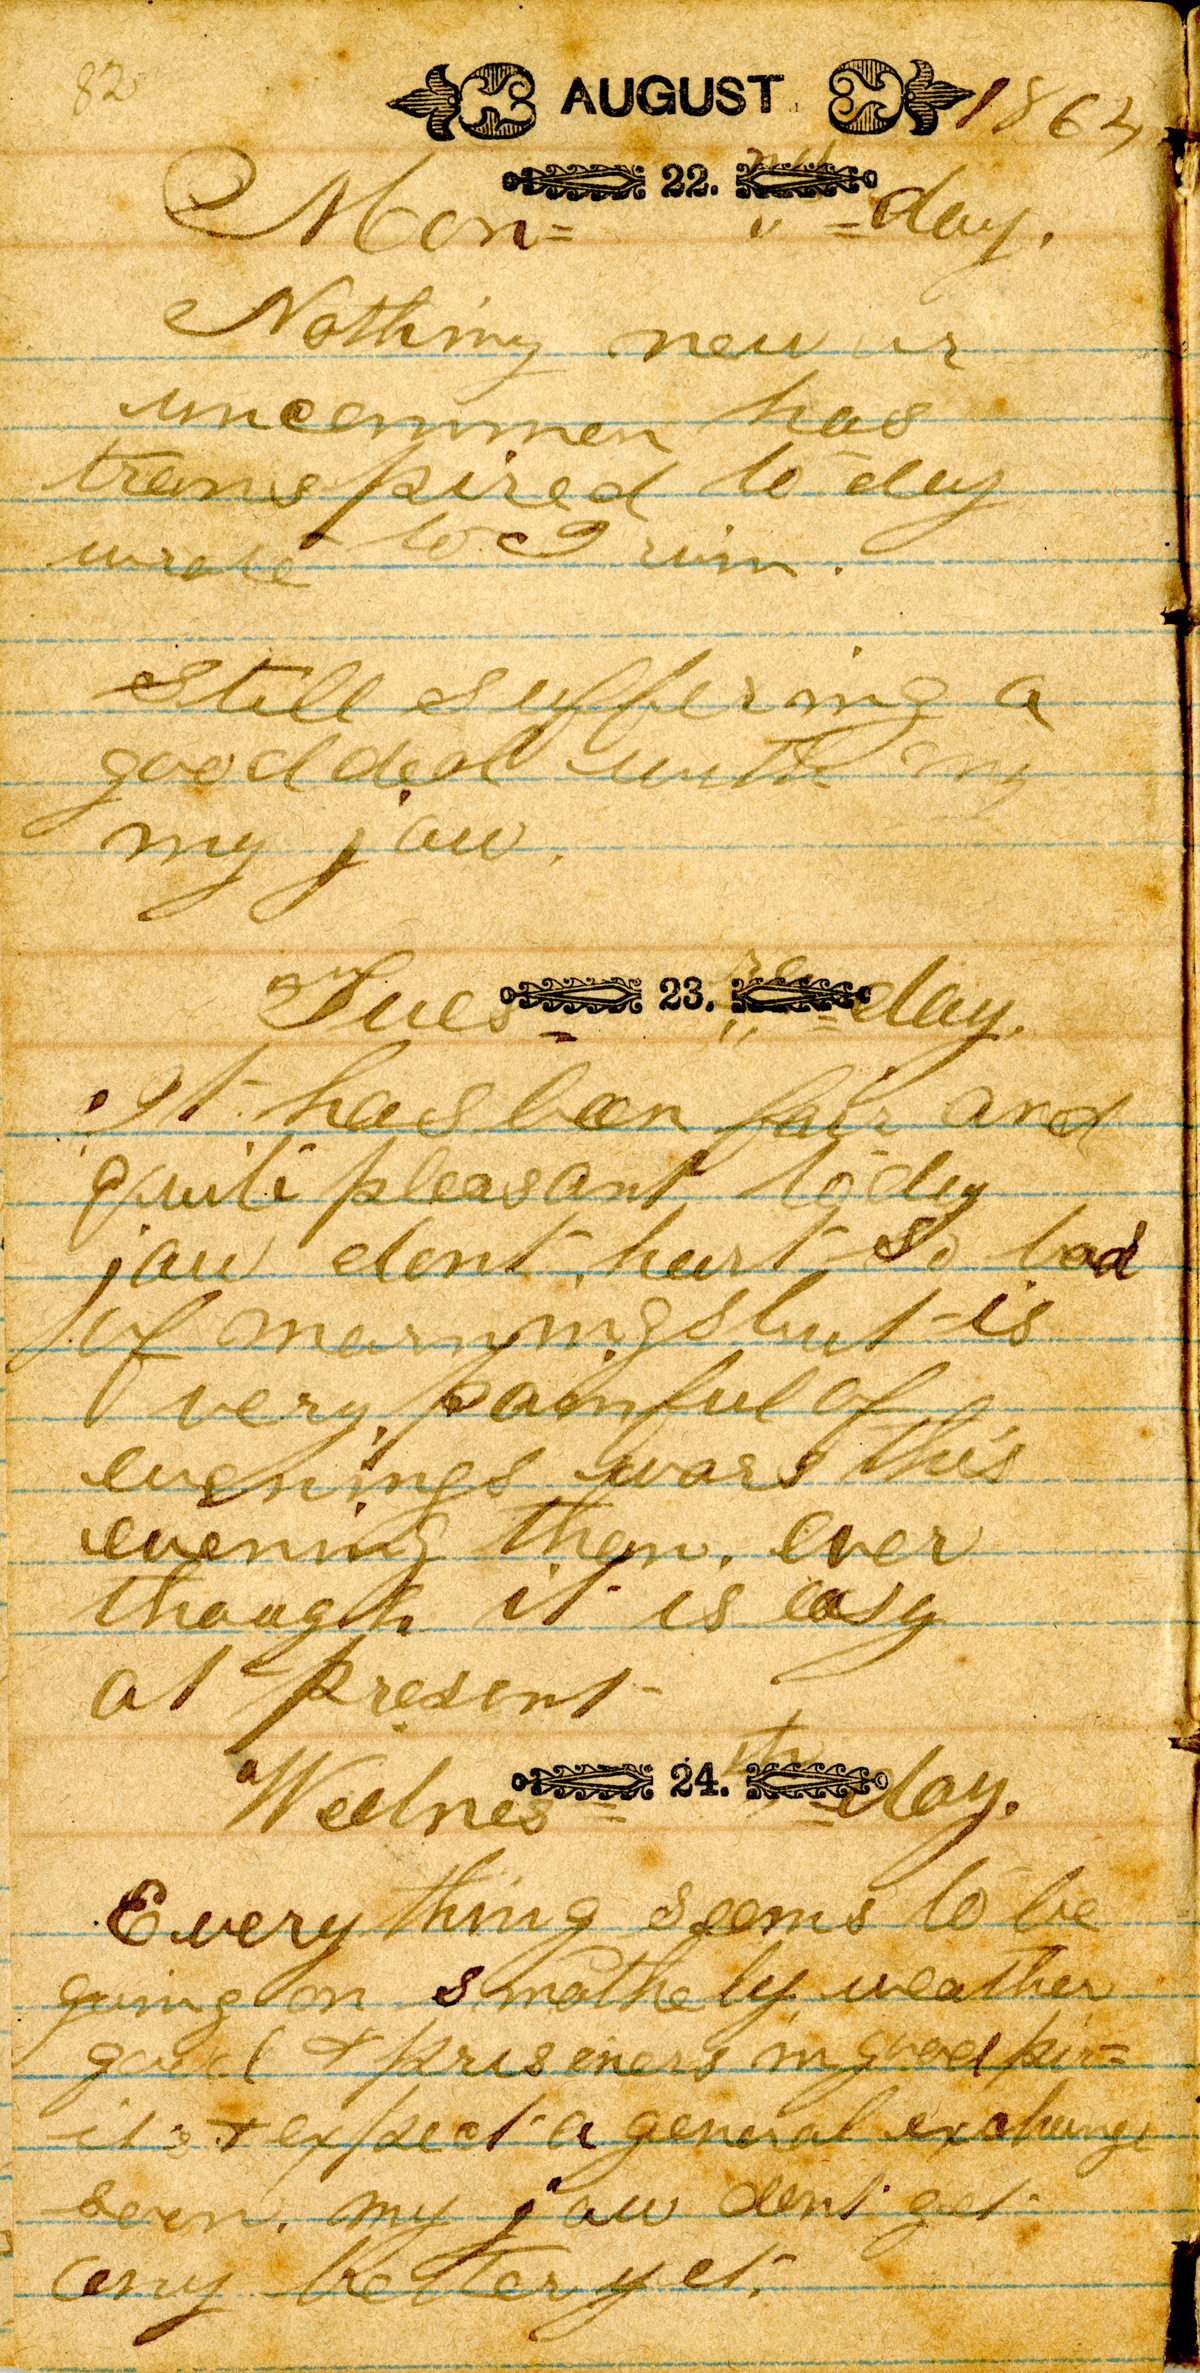 82
AUGUST 1864
Mon= 22. nd " =day.
Nothing new or
uncommon has
transpired to day
wrote to
Still suffering a
good deal with my
my jaw.
Tues= 23. rd " =day.
It has been fair and
quite pleasant to day
jaw dont hurt so bad
of mornings but is
very painful of
evenings wors this
evening then ever
though it is easy
at present
Wednes= 24. th " =day.
Every thing seems to be
going on smothely weather
good & prisoners in good spir=
its & expect a general exchange
soon. my jaw dont get
any better yet.